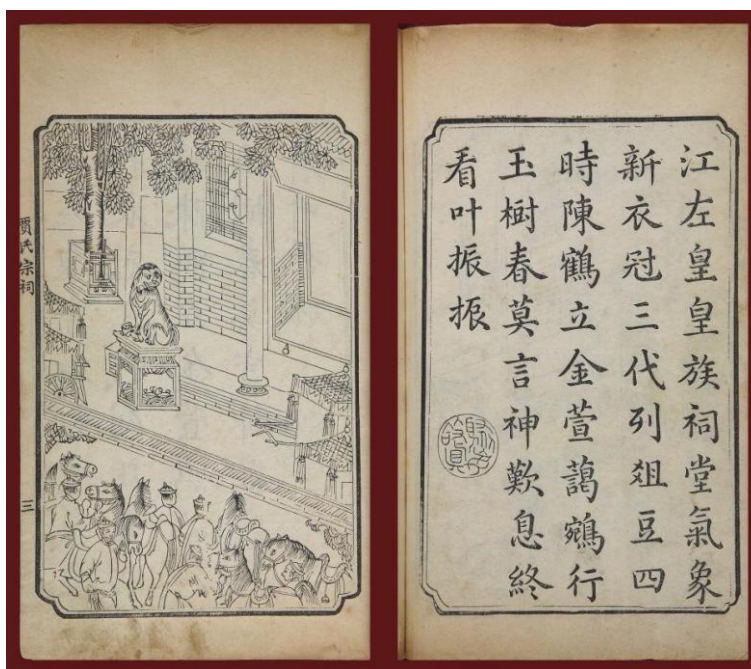 江左皇皇族祠堂氣象
新衣冠三代列爼豆四
時陳鶴立金萱藹鵷行
玉樹春莫言神歎息終
看叶振振
賈氏宗祠
三